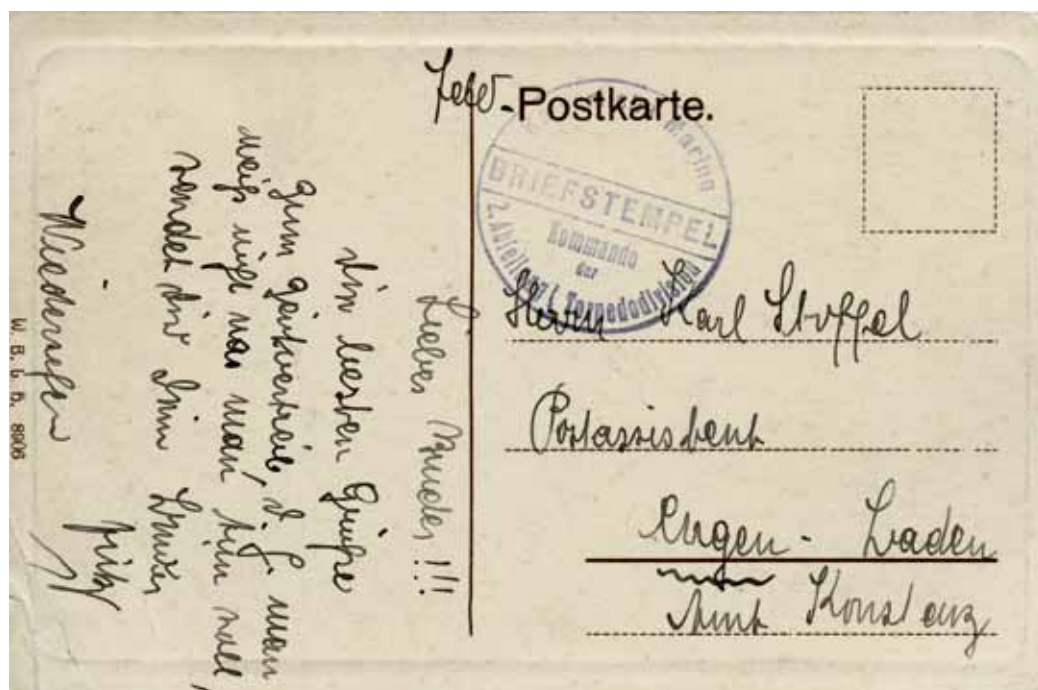 Feld-Postkarte.
Marine
BRIEFSTEMPEL
Kommando
der
2. Abteilung I. Torpedodivision
Herrn Karl Stoffel
Postassistent
Engen - Baden
Amt Konstanz
Lieber Bruder!!!
Die besten Grüße
zum Zeitvertreib, d. h. man
weiß nicht was man tun soll
sendet dir dein Bruder
Fritz
Wiedersehen
W. B. L. B. 8906